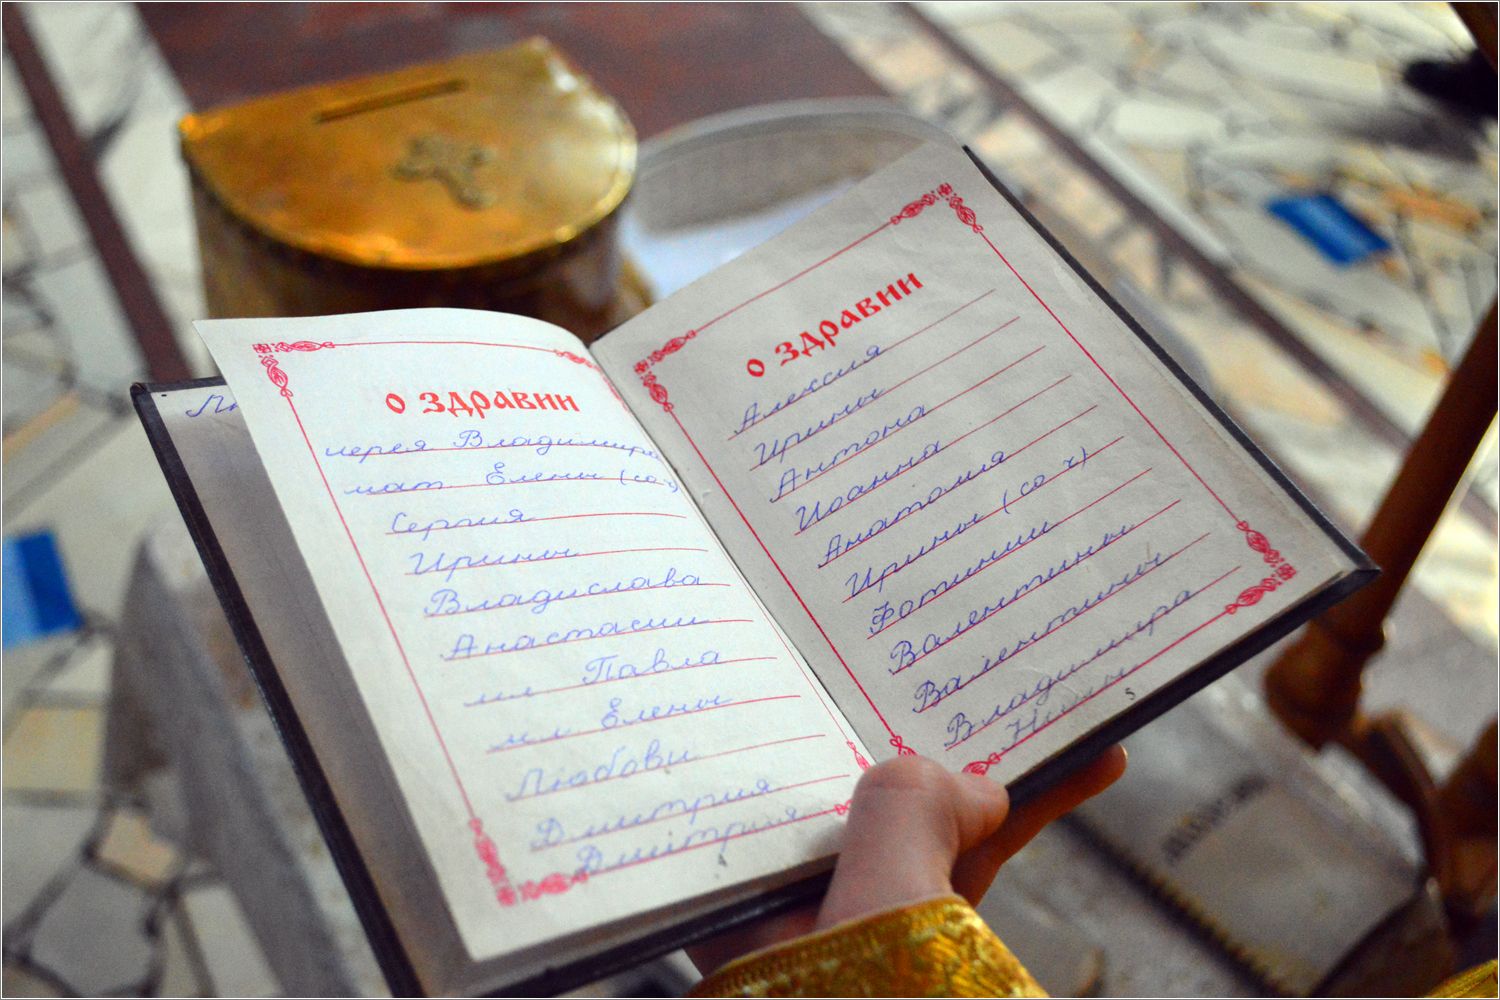 О ЗДРАВИИ
иерея Владимира
мат. Елены (со ч)
Сергия
Ирины
Владислава
Анастасии
мл. Павла
мл. Елены
Любови
Дмитрия
Дмитрия
О ЗДРАВИИ
Алексия
Ирины
Антона
Иоанна
Анатолия
Ирины (со ч)
Фотинии
Валентины
Валентины
Владимира
Нины
5